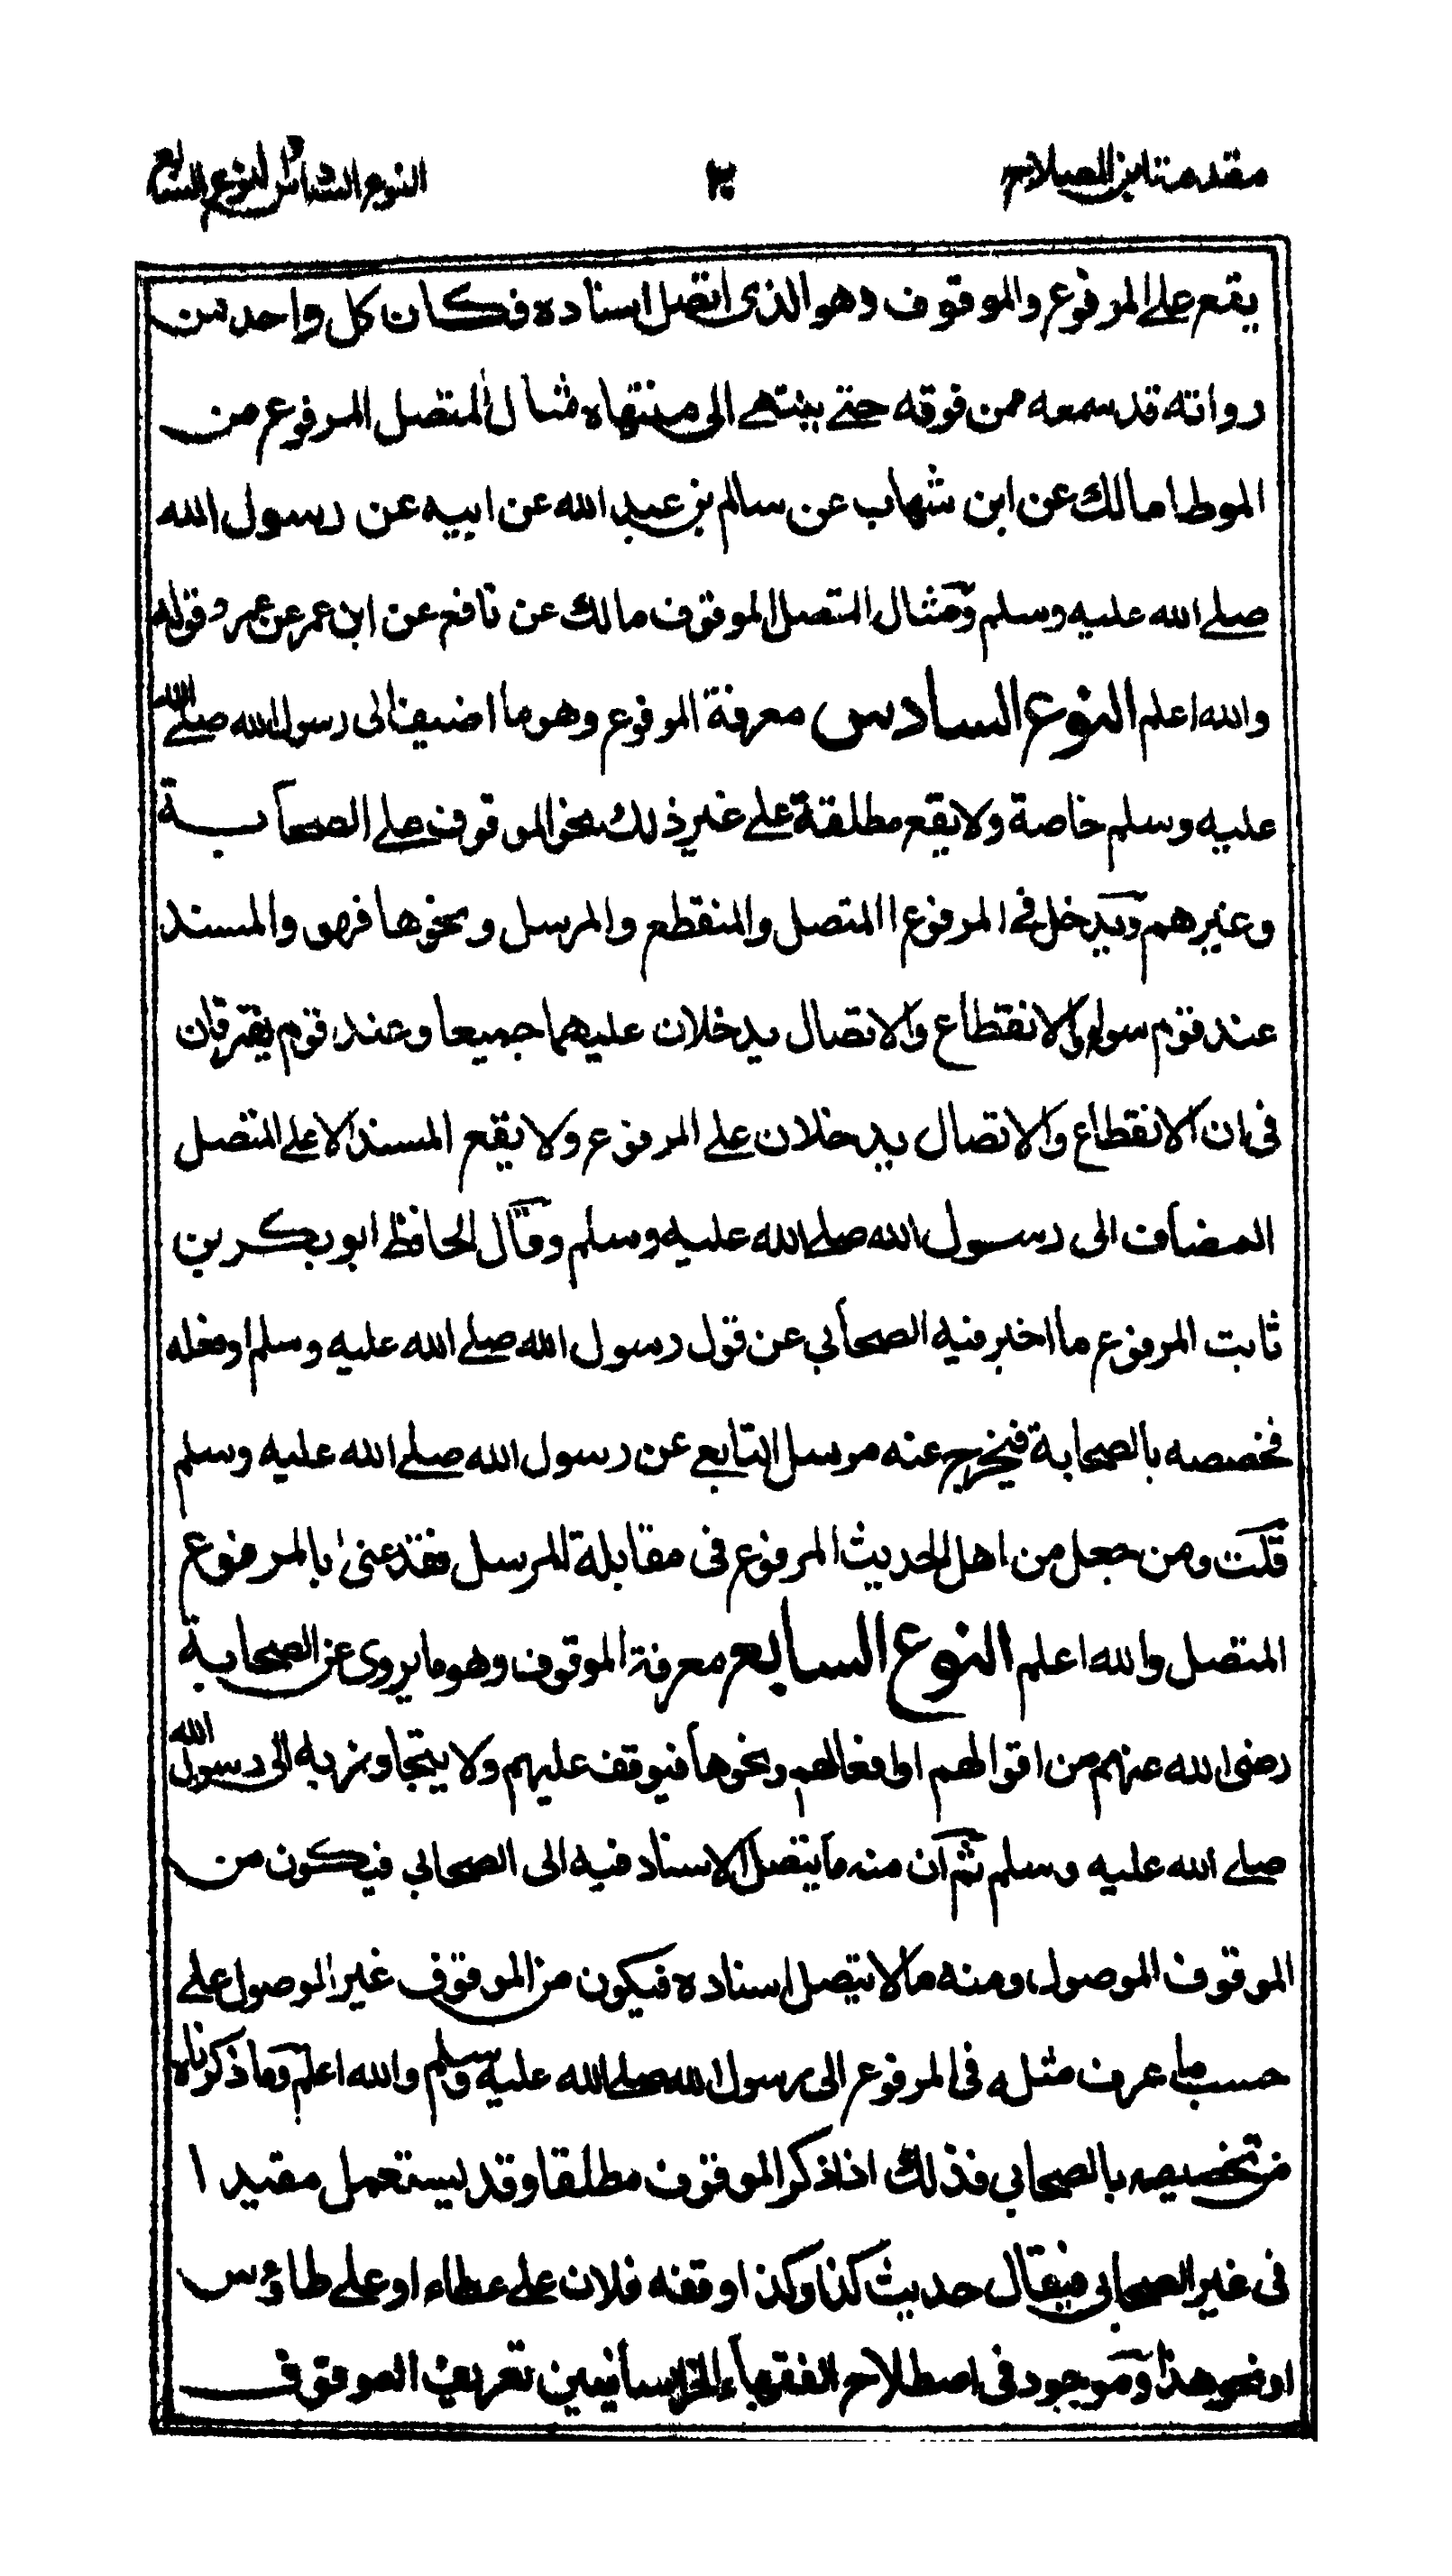 مقدمة ابن الصلاح ٢٠ النوع السادس النوع السابع
يقع على المرفوع والموقوف وهو الذى اتصل اسناده فكان كل واحد من
رواته قد سمعه ممن فوقه حتى ينتهى الى منتهاه مثال المتصل المرفوع من
الموطا مالك عن ابن شهاب عن سالم بن عبد الله عن ابيه عن رسول الله
صلى الله عليه وسلم ومثال المتصل الموقوف مالك عن نافع عن ابن عمر عن عمر قوله
والله اعلم النوع السادس معرفة المرفوع وهو ما اضيف الى رسول الله صلى الله
عليه وسلم خاصة ولا يقع مطلقة على غير ذلك نحو الموقوف على الصحابة
وغيرهم ويدخل فى المرفوع المتصل والمنقطع والمرسل ونحوها فهو والمسند
عند قوم سواء والانقطاع والاتصال يدخلان عليهما جميعا وعند قوم يفترقان
فى ان الانقطاع والاتصال يدخلان على المرفوع ولا يقع المسند الا على المتصل
المضاف الى رسول الله صلى الله عليه وسلم وقال الحافظ ابو بكر بن
ثابت المرفوع ما اخبر فيه الصحابي عن قول رسول الله صلى الله عليه وسلم او فعله
فخصصه بالصحابة فيخرج عنه مرسل التابعى عن رسول الله صلى الله عليه وسلم
قلت ومن جعل من اهل الحديث المرفوع فى مقابلة المرسل فقد عنى بالمرفوع
المتصل والله اعلم النوع السابع معرفة الموقوف وهو ما يروى عن الصحابة
رضى الله عنهم من اقوالهم او افعالهم ونحوها فيوقف عليهم ولا يتجاوز به الى رسول الله
صلى الله عليه وسلم ثم ان منه ما يتصل الاسناد فيه الى الصحابى فيكون من
الموقوف الموصول ومنه ما لا يتصل اسناده فيكون من الموقوف غير الموصول على
حسب ما عرف مثله فى المرفوع الى رسول الله صلى الله عليه وسلم والله اعلم وما ذكرناه
من تخصيصه بالصحابى فذلك اذا ذكر الموقوف مطلقا وقد يستعمل مقيدا
فى غير الصحابى فيقال حديث كذا وكذا وقفه فلان على عطاء او على طاؤس
او نحو هذا وموجود فى اصطلاح الفقهاء الخراسانيين تعريف الموقوف